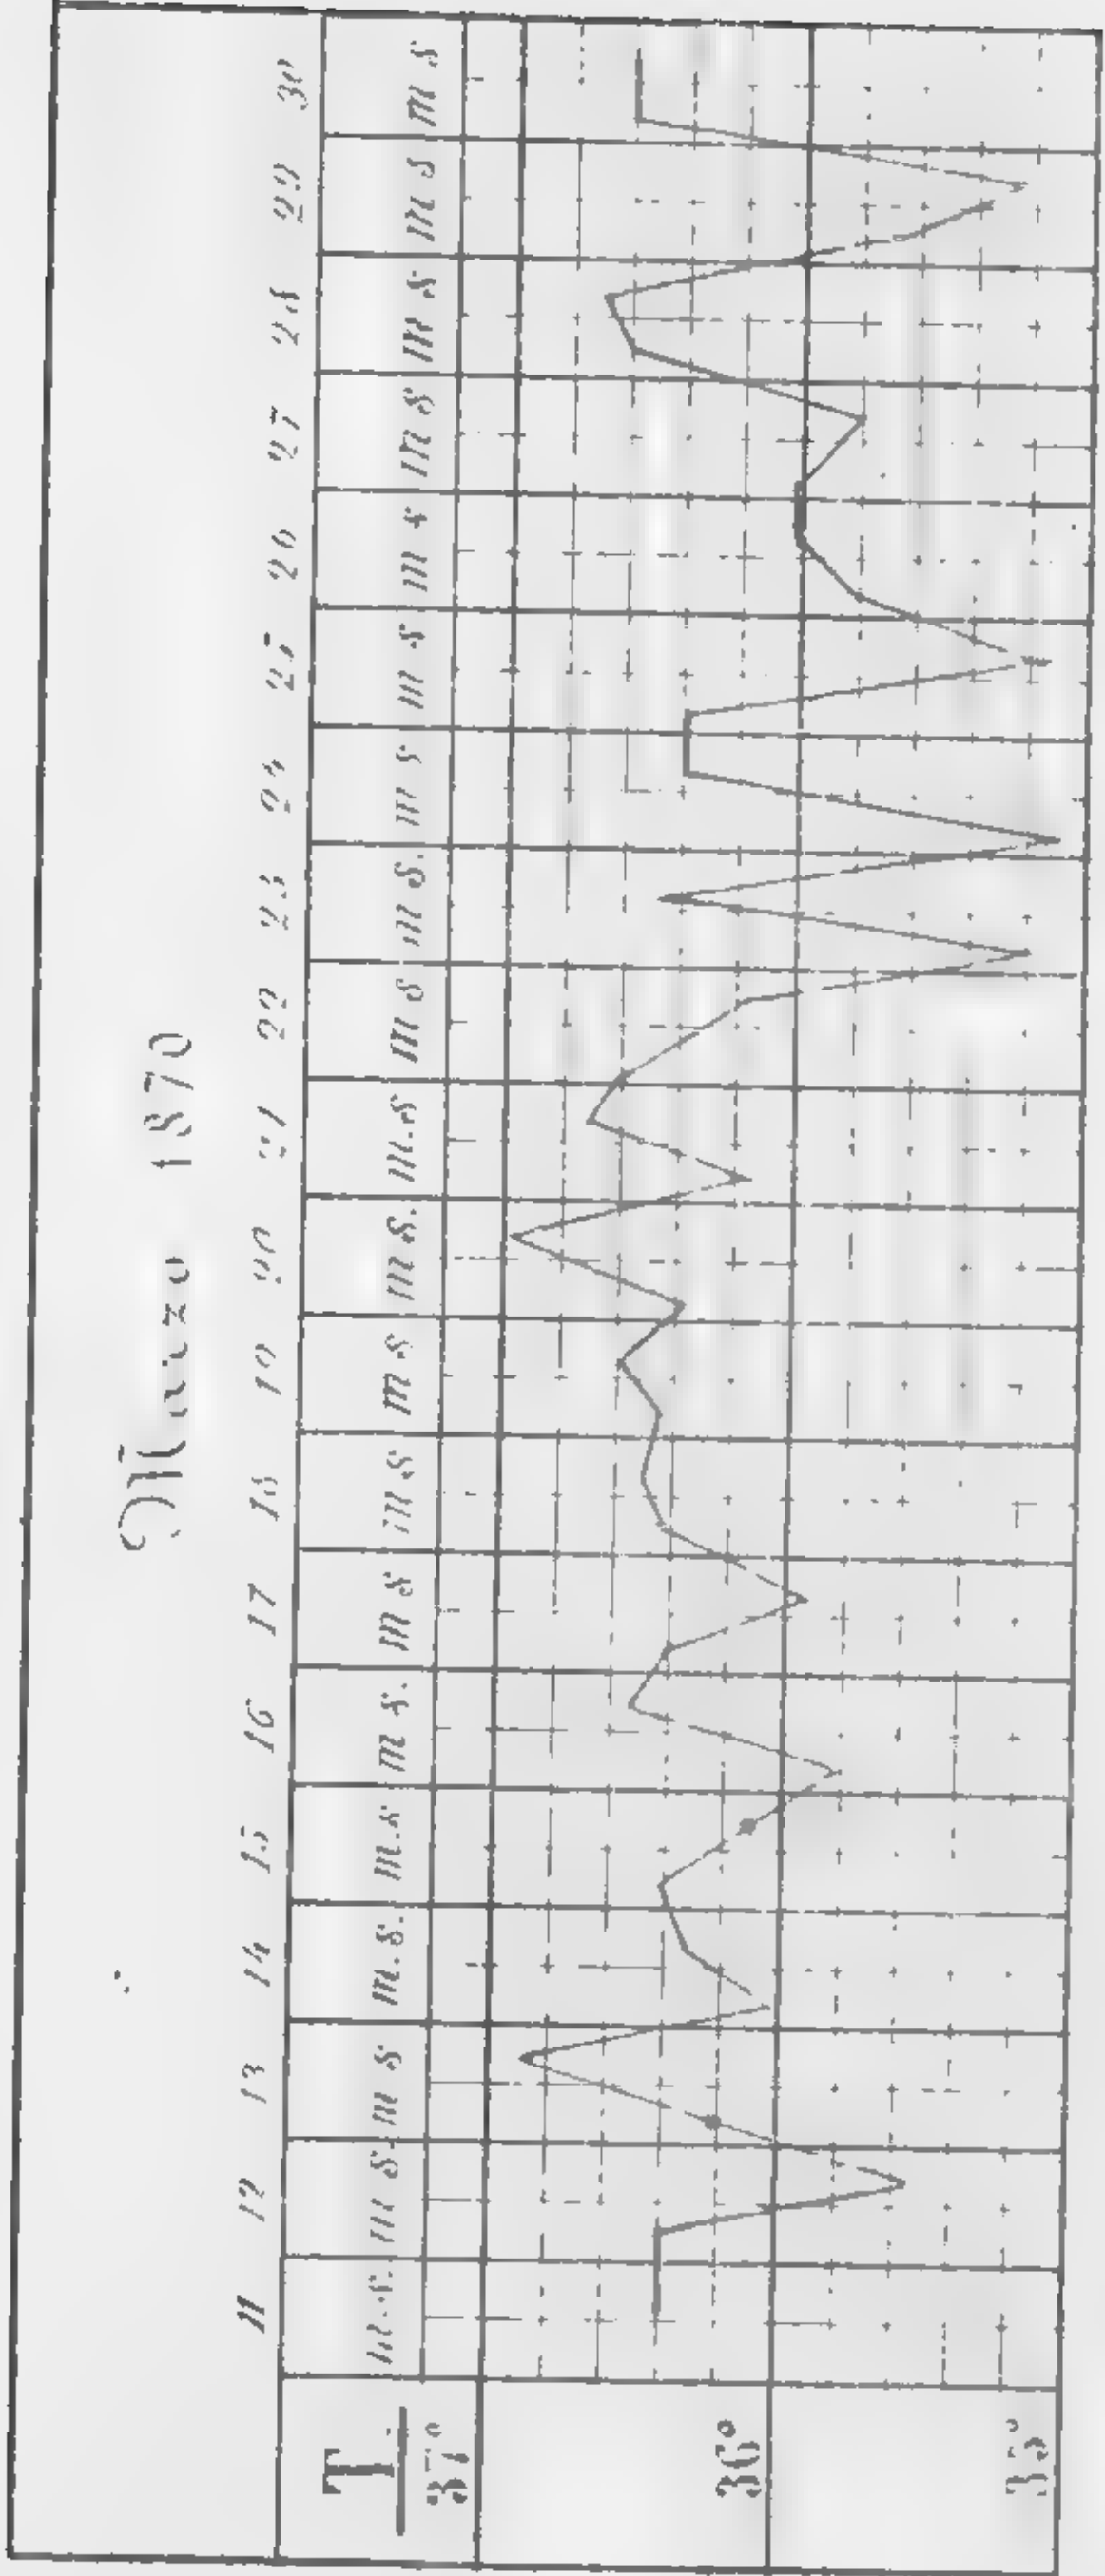 Marzo 1870
11 12 13 14 15 16 17 18 19 20 21 22 23 24 25 26 27 28 29 30
T. m.s. m s. m s m.s. m.s m s. m s m s m s m s. m.s m s m s. m s m s m s m s m s m s m s
37°
36°
35°